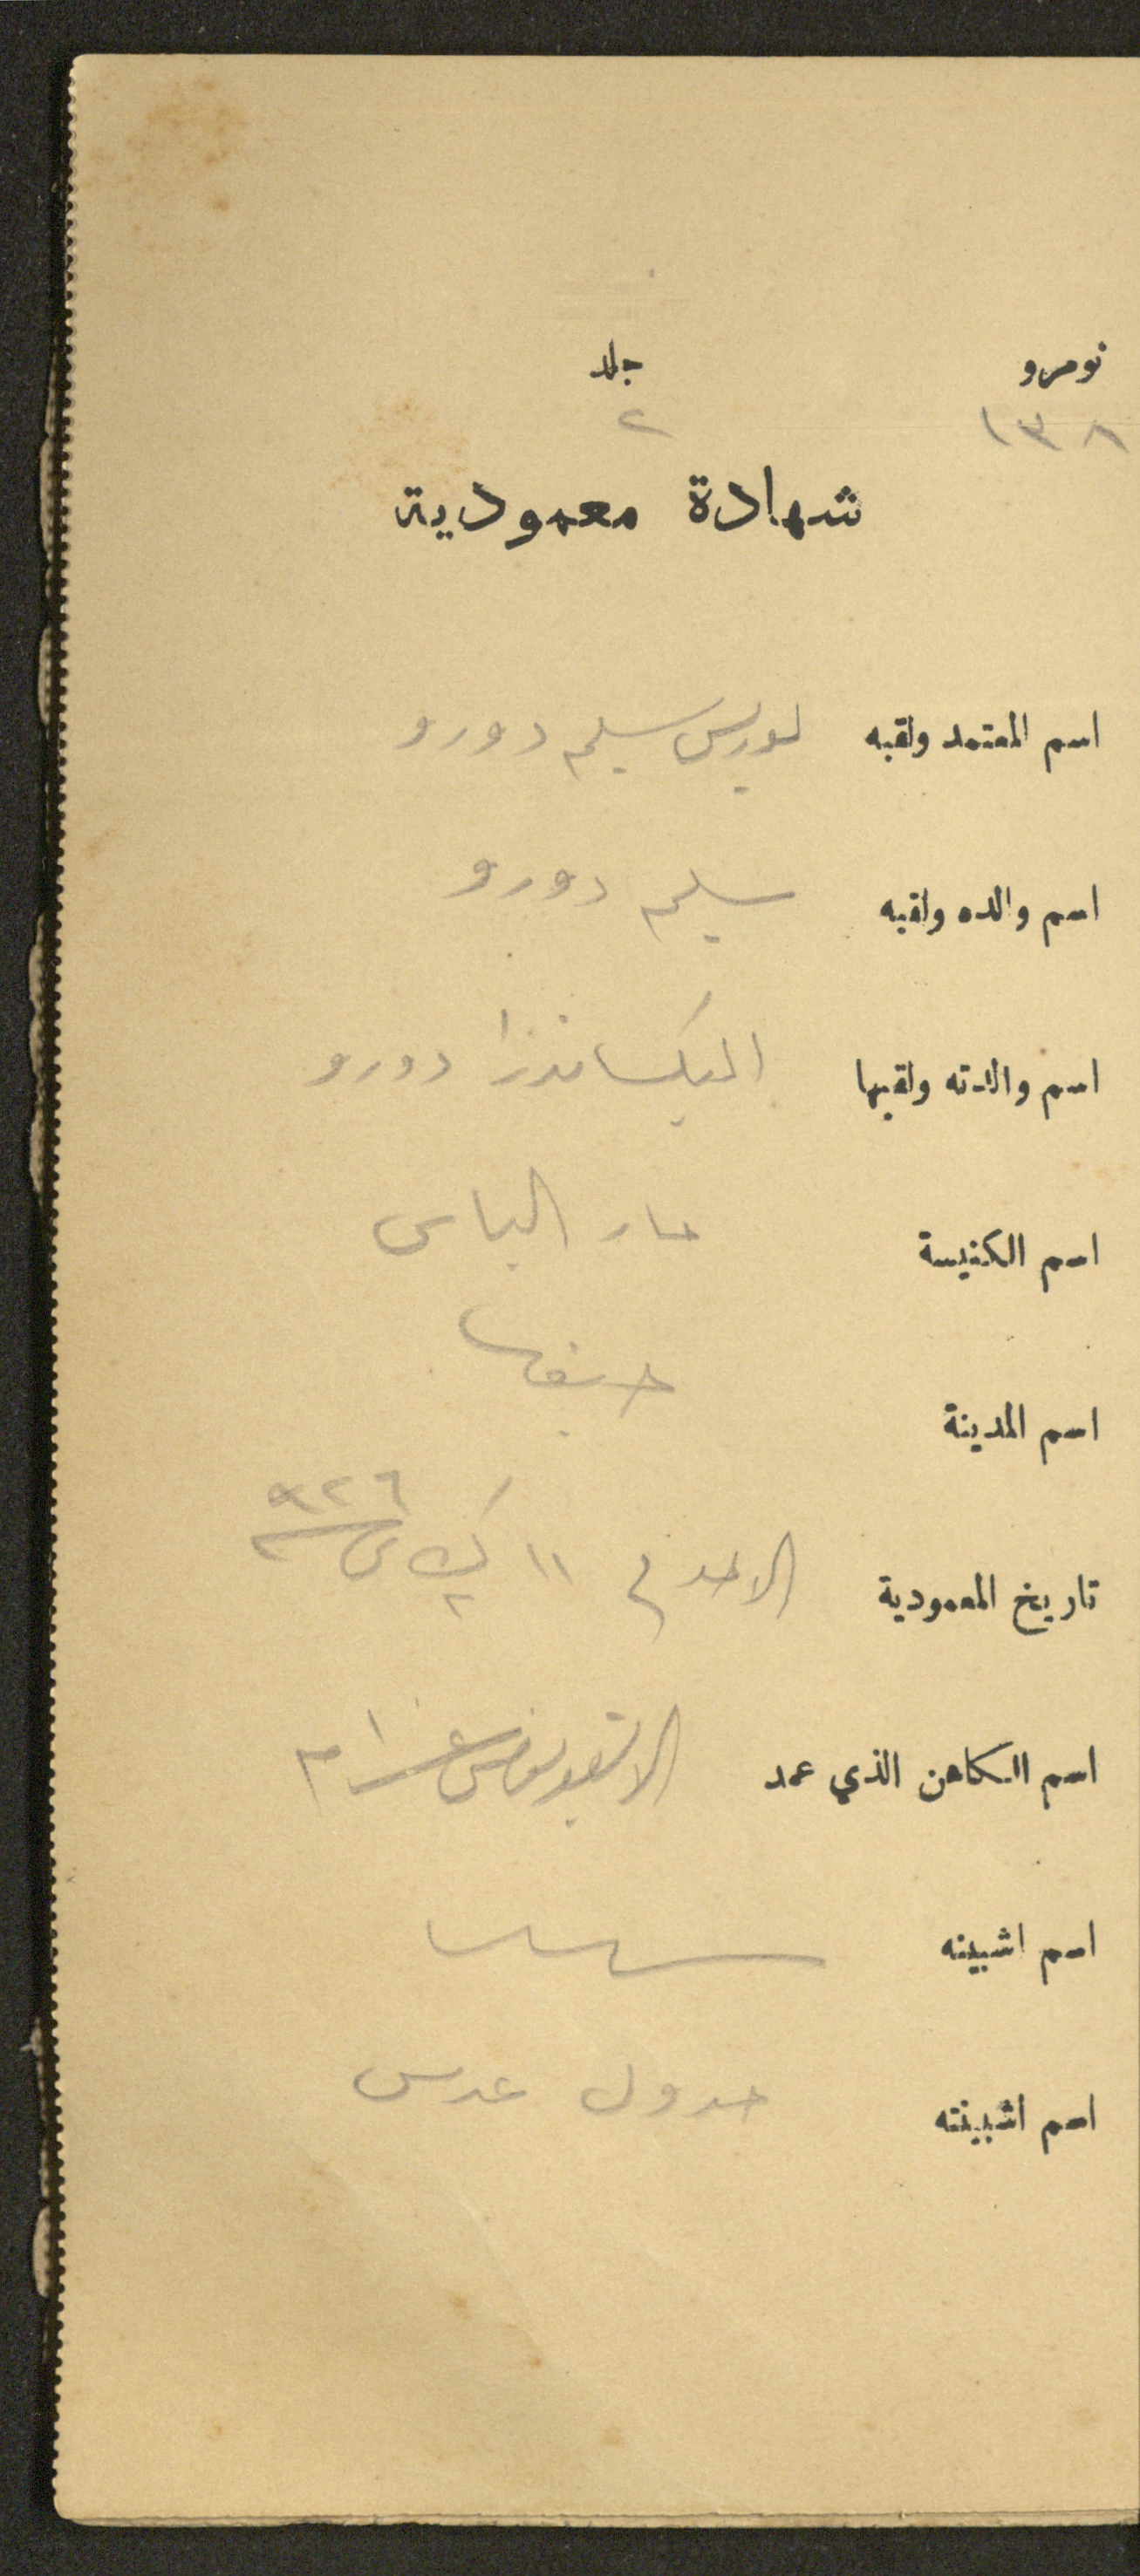 نومرو جلد
١٣٨ ٢
شهادة معمودية
اسم المعتمد ولقبه لوريس سليم دورو
اسم والده ولقبه سليم دورو
اسم والدته ولقبها اليكساندرا دورو
اسم الكنيسة مار الياس
اسم المدينة حيفا
تاريخ المعمودية الاحد في ١١ ك٢ سنة ٩٢٦
اسم الكاهن الذي عمد
اسم اشبينه
اسم اشبينته عدس